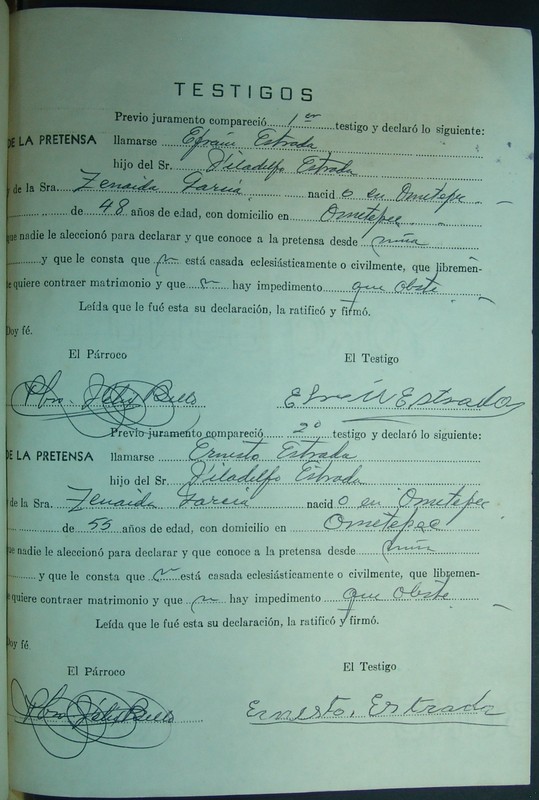 TESTIGOS
Previo juramento compareció 1er testigo y declaró lo siguiente:
DE LA PRETENSA llamarse Efraín Estrada
hijo del Sr. Filadelfo Estrada
y de la Sra. Zenaida García nacid o en Ometepec
de 48 años de edad, con domicilio en Ometepec
que nadie le aleccionó para declarar y que conoce a la pretensa desde niña
y que le consta que no está casada eclesiásticamente o civilmente, que libremen-
e quiere contraer matrimonio y que no hay impedimento que obste
Leída que le fué esta su declaración, la ratificó y firmó.
Doy fé.
El Párroco El Testigo
Pbro. Bello Efraín Estrada
Previo juramento compareció 2o testigo y declaró lo siguiente:
DE LA PRETENSA llamarse Ernesto Estrada
hijo del Sr. Filadelfo Estrada
de la Sra. Zenaida García nacid o en Ometepec
de 55 años de edad, con domicilio en Ometepec
ue nadie le aleccionó para declarar y que conoce a la pretensa desde niña
y que le consta que no está casada eclesiásticamente o civilmente, que libremen-
e quiere contraer matrimonio y que no hay impedimento que obste
Leída que le fué esta su declaración, la ratificó y firmó.
Doy fé.
El Párroco El Testigo
Pbro. Bello Ernesto. Estrada